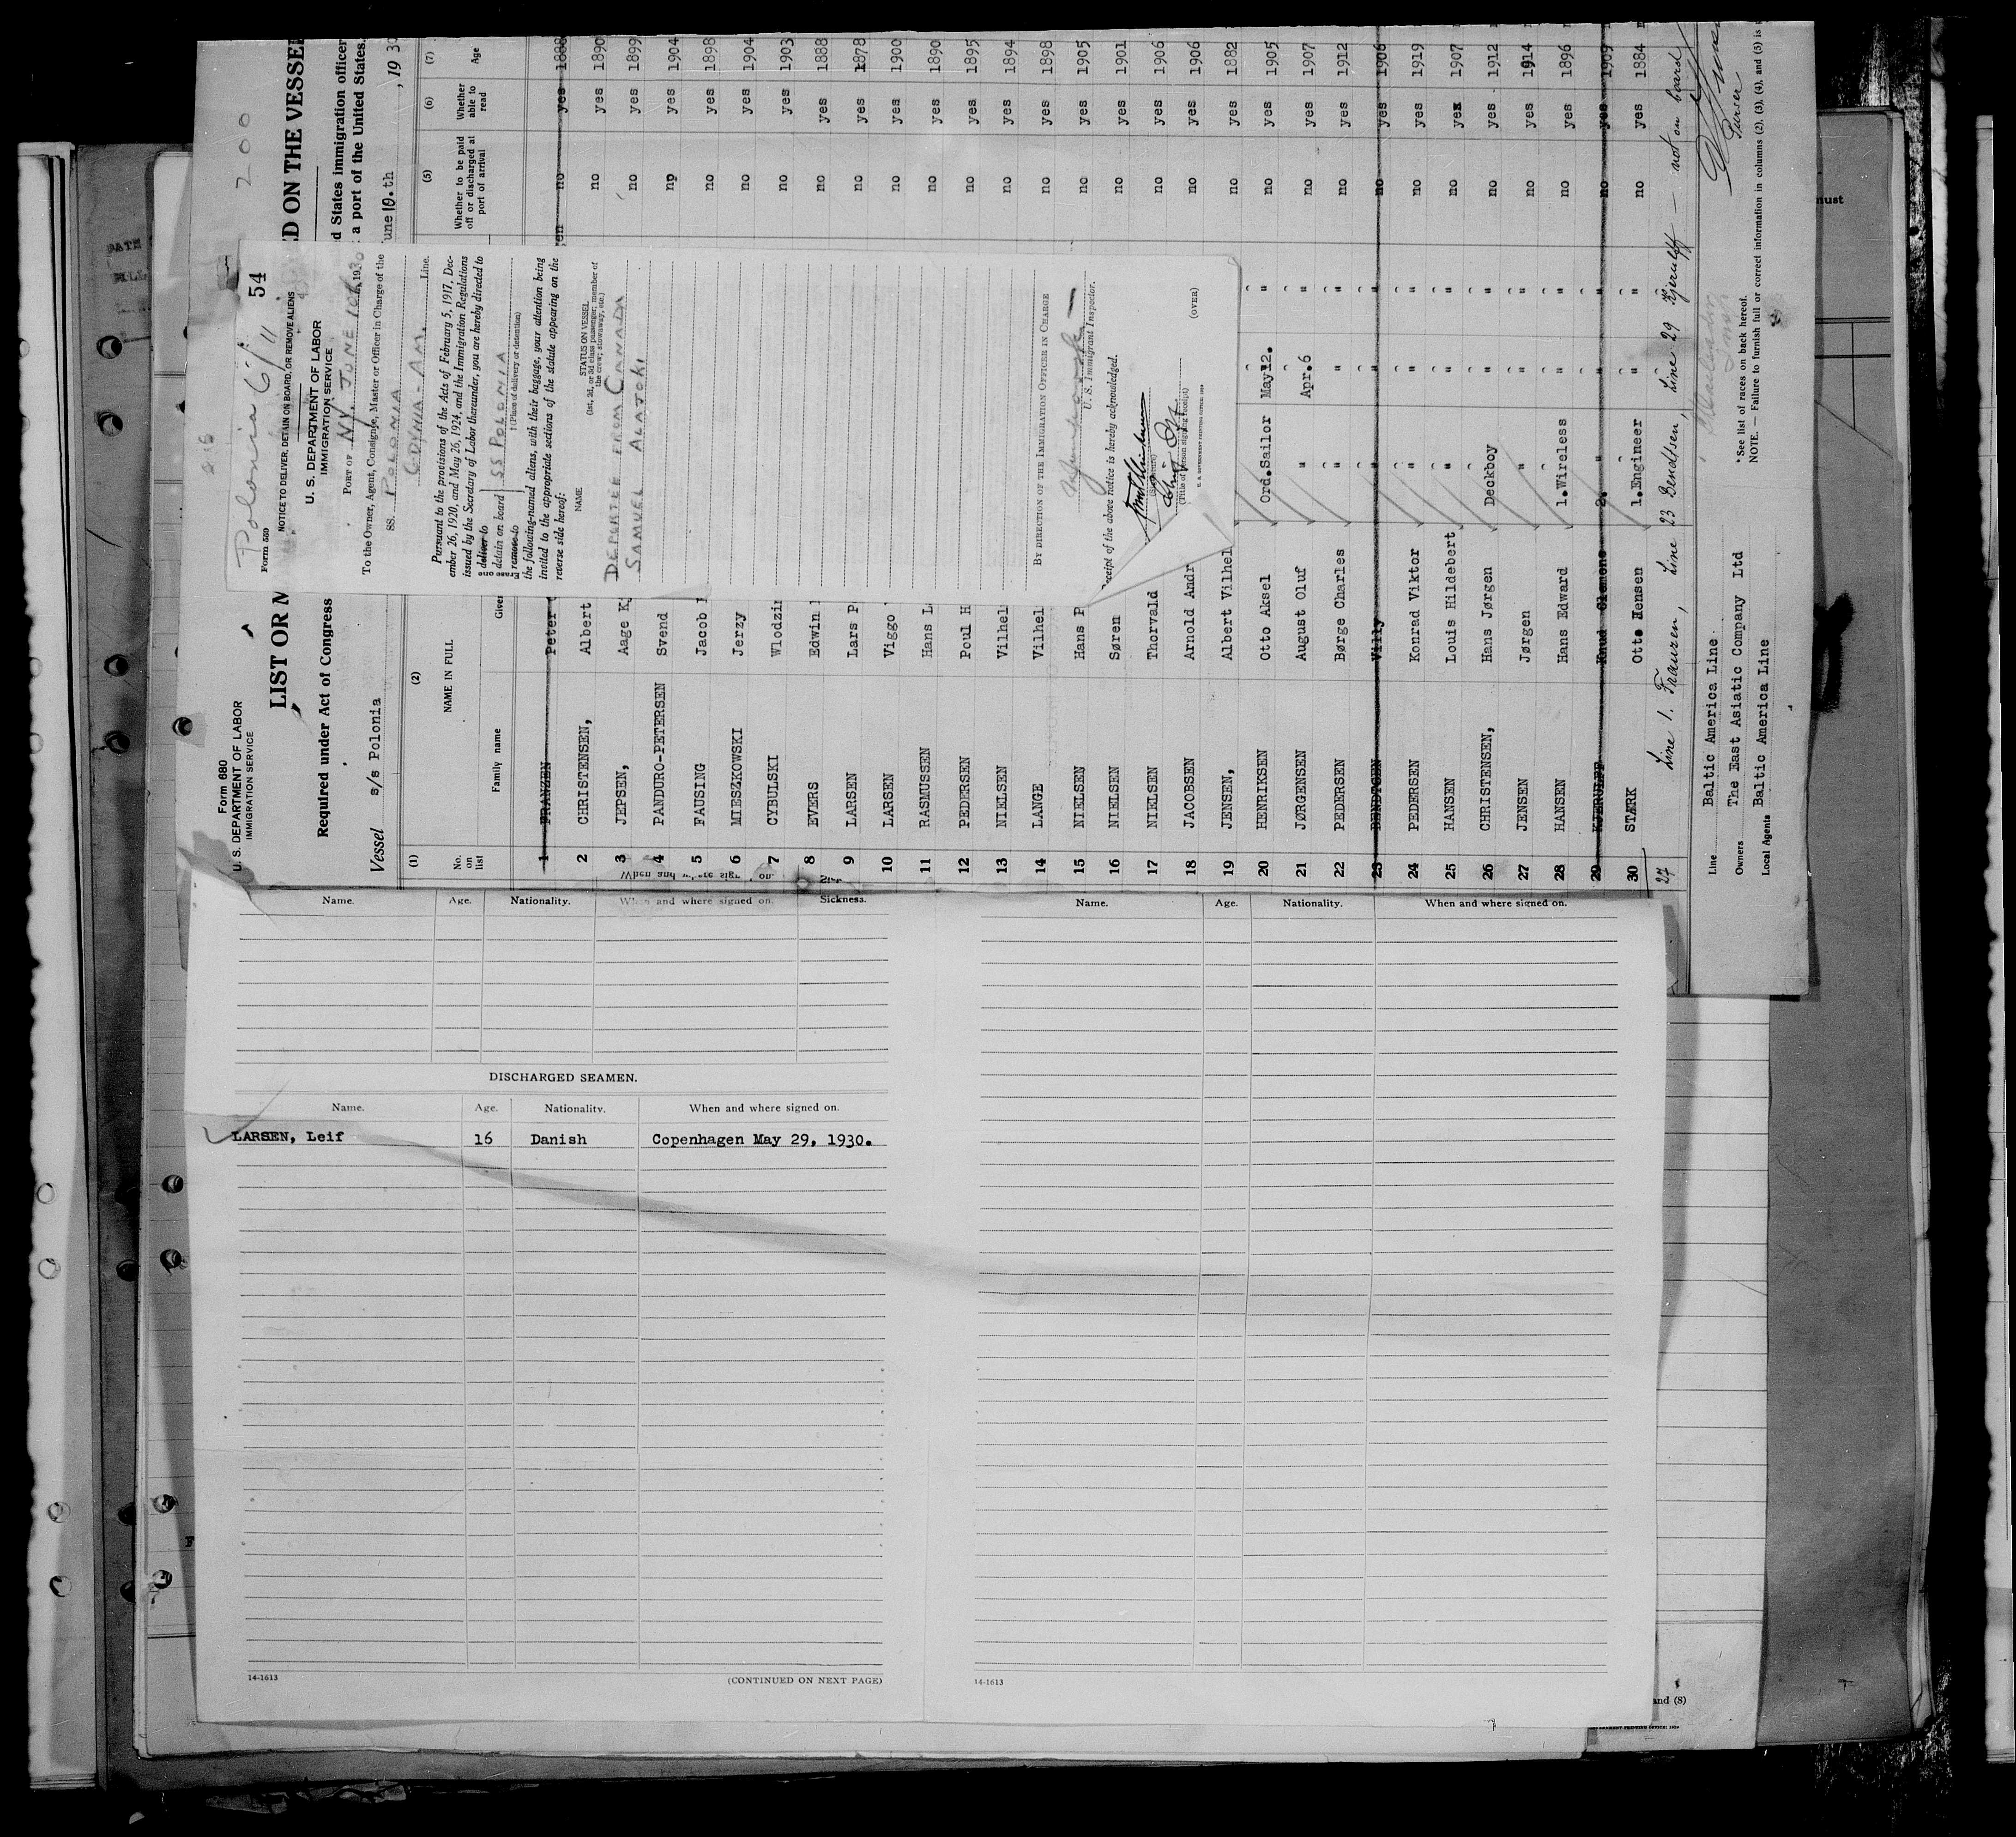 Form 680
U. S. DEPARTMENT OF LABOR
IMMIGRATION SERVICE
200
LIST OR M
ED ON THE VESSEL
Required under Act of Congress
d States immigration officer
a port of the United States.
Vessel s/s Polonia
June 10.th, 1930
(1) (2) (5) (6) (7)
No. on list
NAME IN FULL
Family name Given
Whether to be paid off or discharged at port of arrival
Whether able to read
Age
1 FRANZEN Peter no yes 1888
2 CHRISTENSEN, Albert no yes 1890
3 JEPSEN, Aage Kj no yes 1899
4 PANDURO-PETERSEN Svend no yes 1904
5 FAUSING Jacob no yes 1898
6 MIESZKOWSKI Jerzy no yes 1904
7 CYBULSKI Wlodzim no yes 1903
8 EVERS Edwin no yes 1888
9 LARSEN Lars P no yes 1878
10 LARSEN Viggo no yes 1900
11 RASMUSSEN Hans L no yes 1890
12 PEDERSEN Poul H no yes 1895
13 NIELSEN Vilhel no yes 1894
14 LANGE Vilhel no yes 1898
15 NIELSEN Hans P no yes 1905
16 NIELSEN Søren no yes 1901
17 NIELSEN Thorvald no yes 1906
18 JACOBSEN Arnold Andr no yes 1906
19 JENSEN, Albert Vilhel no yes 1882
20 HENRIKSEN Otto Aksel Ord.Sailor May 12. " no yes 1905
21 JØRGENSEN August Oluf " Apr.6 " no yes 1907
22 PEDERSEN Børge Charles " " " no yes 1912
23 BENDTSEN Villy " " " no yes 1906
24 PEDERSEN Konrad Viktor " " " no yes 1919
25 HANSEN Louis Hildebert " " " no yes 1907
26 CHRISTENSEN, Hans Jørgen Deckboy " " no yes 1912
27 JENSEN Jørgen " " " no yes 1914
28 HANSEN Hans Edward 1.Wireless " " no yes 1896
29 KJERULFF Knud Clemens 2. " " " no yes 1909
30 STÆRK Otto Hensen 1.Engineer " " no yes 1884
27 Line 1. Franzen, Line 23 Bendtsen, Line 29 Kjerulff — not on board
Line Baltic America Line
Owners The East Asiatic Company Ltd
Local Agents Baltic America Line
Purser
*See list of races on back hereof.
NOTE. — Failure to furnish full or correct information in columns (2), (3), (4), and (5) is
Polonia 6/11
54
Form 559
NOTICE TO DELIVER, DETAIN ON BOARD, OR REMOVE ALIENS
U. S. DEPARTMENT OF LABOR
IMMIGRATION SERVICE
PORT OF N.Y. JUNE 10th, 1930
To the Owner, Agent, Consignee, Master or Officer in Charge of the
SS. POLONIA
GDYNIA-AM. Line.
Pursuant to the provisions of the Acts of February 5, 1917, Dec-
ember 26, 1920, and May 26, 1924, and the Immigration Regulations
issued by the Secretary of Labor thereunder, you are hereby directed to
deliver to
detain on board
remove to
Erase one
SS POLONIA
† (Place of delivery or detention)
the following-named aliens, with their baggage, your attention being
invited to the appropriate sections of the statute appearing on the
reverse side hereof:
NAME
STATUS ON VESSEL
(1st, 2d, or 3d class passenger; member of
the crew; stowaway, etc.)
DEPORTEE FROM CANADA
SAMUEL ALAJOKI
BY DIRECTION OF THE IMMIGRATION OFFICER IN CHARGE
U. S. Immigrant Inspector.
Receipt of the above notice is hereby acknowledged.
(Signature)
(Title of person signing receipt)
(OVER)
Name. Age. Nationality. When and where signed on. Sickness.
DISCHARGED SEAMEN.
Name. Age. Nationality. When and where signed on.
LARSEN, Leif 16 Danish Copenhagen May 29, 1930.
14-1613
(CONTINUED ON NEXT PAGE)
Name. Age. Nationality. When and where signed on.
14-1613
must
and (8)